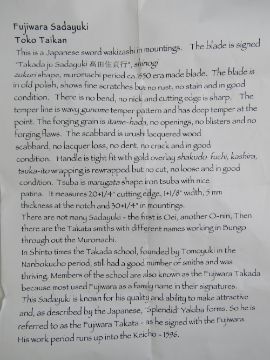 Fujiwara Sadayuki
Toko Taikan
This is a Japanese sword wakizashi in mountings. The blade is signed
"Takada ju Sadayuki 高田住貞行", shinogi
zukuri shape, muromachi period ca. 1550 era made blade. The blade is
in old polish, shows fine scratches but no rust, no stain and in good
condition. There is no bend, no nick and cutting edge is sharp. The
temper line is wavy gunome temper pattern and has deep temper at the
point. The forging grain is itame-hada, no openings, no blisters and no
forging flaws. The scabbard is urushi lacquered wood
scabbard, no lacquer loss, no dent, no crack and in good
condition. Handle is tight fit with gold overlay shakudo fuchi, kashira,
tsuka-ito wrapping is rewrapped but no cut, no loose and in good
condition. Tsuba is marugata shape iron tsuba with nice
patina. It measures 20*1/4" cutting edge, 1*1/8" width, 5 mm
thickness at the notch and 30*1/4" in mountings.
There are not many Sadayuki - the first is Oei, another O-nin, Then
there are the Takata smiths with different names working in Bungo
through out the Muromachi.
In Shinto times the Takada school, founded by Tomoyuki in the
Nanbokucho period, still had a good number of smiths and was
thriving. Members of the school are also known as the Fujiwara Takada
because most used Fujiwara as a family name in their signatures.
This Sadayuki is known for his quality and ability to make attractive
and, as described by the Japanese, 'Splendid' Yakiba forms. So he is
referred to as the Fujiwara Takata - as he signed with the Fujiwara.
His work period runs up into the Keicho - 1596.